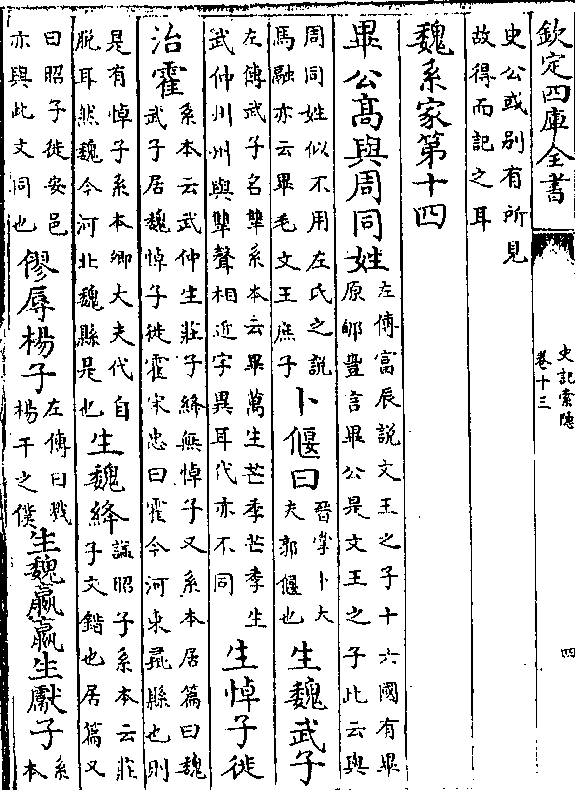 欽定四庫全書
史記索隱
卷十三
四
史公或别有所見
故得而記之耳
魏系家第十四
畢公髙與周同姓左傳富辰說文王之子十六國有畢
原郇豐言畢公是文王之子此云與
周同姓似不用左氏之說
馬融亦云畢毛文王庶子卜偃曰晉掌卜大
夫郭偃也生魏武子
左傳武子名犨系本云畢萬生芒季芒季生
武仲州州與犨聲相近字異耳代亦不同生悼子徙
治霍系本云武仲生莊子絳無悼子又系本居篇曰魏
武子居魏悼子徙霍宋忠曰霍今河東彘縣也則
是有悼子系本卿大夫代自
脱耳然魏今河北魏縣是也生魏絳諡昭子系本云莊
子文錯也居篇又
曰昭子徙安邑
亦與此文同也僇辱楊子左傳曰戮
楊干之僕生魏嬴嬴生獻子系
本